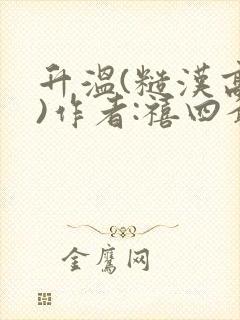 升温(糙漢高
)作者:禧四
金鹰网